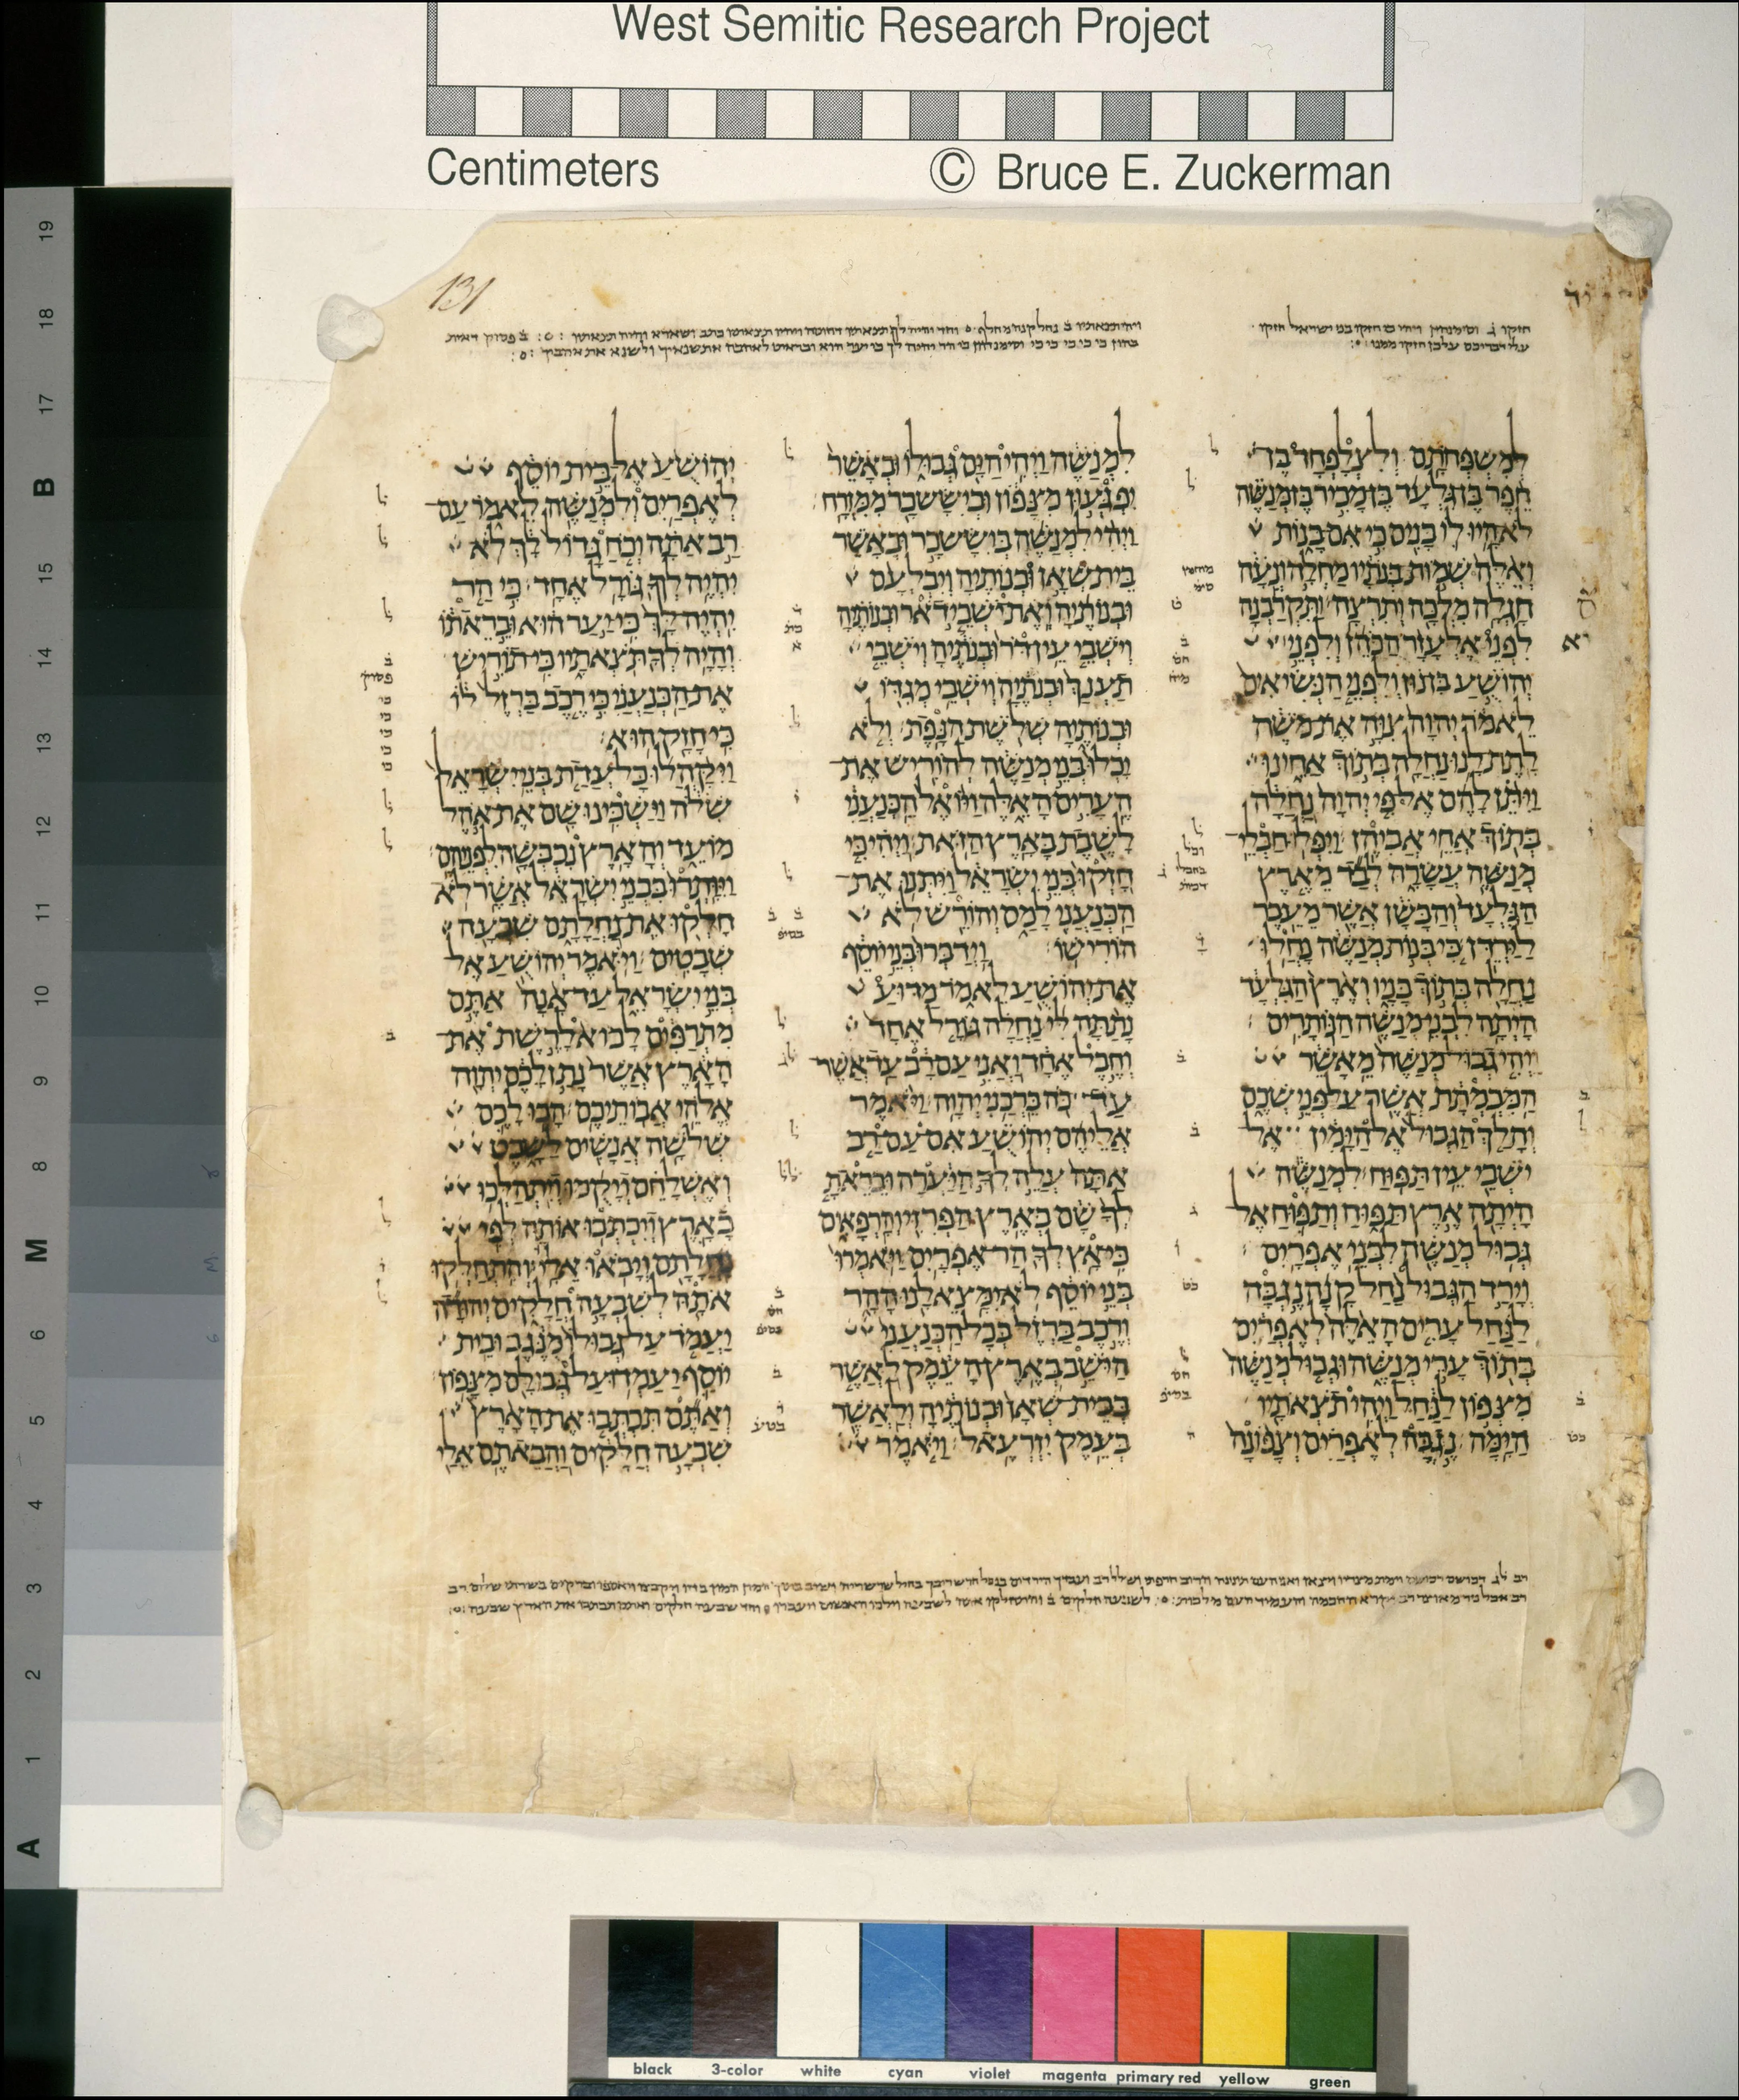 West Semitic Research Project
Centimeters © Bruce E. Zuckerman
131
חזקו ג וסימנהון ויהי כי חזקו בני ישראל חזקו
עלי דבריכם על כן חזקו ממנו
למשפחתם ולצלפחד בד
חפר בן גלעד בן מכיר בן מנשה
לא היו לו בנים כי אם בנות
ואלה שמות בנתיו מחלה ונעה
חגלה מלכה ותרצה ותקרבנה
לפני אלעזר הכהן ולפני
יהושע בן נון ולפני הנשיאים
לאמר יהוה צוה את משה
לתת לנו נחלה בתוך אחינו
ויתן להם אל פי יהוה נחלה
בתוך אחי אביהן ויפלו חבלי
מנשה עשרה לבד מארץ
הגלעד והבשן אשר מעבר
לירדן כי בנות מנשה נחלו
נחלה בתוך בניו וארץ הגלעד
היתה לבני מנשה הנותרים
ויהי גבול מנשה מאשר
המכמתת אשר על פני שכם
והלך הגבול אל הימין אל
ישבי עין תפוח למנשה
היתה ארץ תפוח ותפוח אל
גבול מנשה לבני אפרים
וירד הגבול נחל קנה נגבה
לנחל ערים האלה לאפרים
בתוך ערי מנשה וגבול מנשה
מצפון לנחל ויהי תצאתיו
הימה נגבה לאפרים וצפונה
למנשה ויהי הים גבולו ובאשר
יפגעון מצפון ובי ששכר ממזרח
ויהי למנשה בי ששכר ובאשר
בית שאן ובנותיה ויבלעם
ובנותיה ואת ישבי דאר ובנותיה
וישבי עין דר ובנתיה וישבי
תענך ובנתיה וישבי מגדו
ובנותיה שלשת הנפת ולא
יכלו בני מנשה להוריש את
הערים האלה ויואל הכנעני
לשבת בארץ הזאת ויהי כי
חזקו בני ישראל ויתנו את
הכנעני למס והורש לא
הורישו וידברו בני יוסף
את יהושע לאמר מדוע
נתתה לי נחלה גורל אחד
וחבל אחד ואני עם רב עד אשר
עד כה ברכני יהוה ויאמר
אליהם יהושע אם עם רב
אתה עלה לך היערה ובראת
לך שם בארץ הפרזי והרפאים
כי אץ לך הר אפרים ויאמרו
בני יוסף לא ימצא לנו ההר
ורכב ברזל בכל הכנעני
הישב בארץ העמק לאשר
בבית שאן ובנותיה ולאשר
בעמק יזרעאל ויאמר
יהושע אל בית יוסף
לאפרים ולמנשה לאמר עם
רב אתה וכח גדול לך לא
יהיה לך גורל אחד כי הר
יהיה לך כי יער הוא ובראתו
והיה לך תצאתיו כי תוריש
את הכנעני כי רכב ברזל לו
כי חזק הוא
ויקהלו כל עדת בני ישראל
שלה וישכינו שם את אהל
מועד והארץ נכבשה לפניהם
ויותרו בבני ישראל אשר לא
חלקו את נחלתם שבעה
שבטים ויאמר יהושע אל
בני ישראל עד אנה אתם
מתרפים לבוא לרשת את
הארץ אשר נתן לכם יהוה
אלהי אבותיכם הבו לכם
שלשה אנשים לשבט
ואשלחם ויקמו ויתהלכו
בארץ ויכתבו אותה לפי
נחלתם ויבאו אלי והתחלקו
אתה לשבעה חלקים יהודה
יעמד על גבולו מנגב ובית
יוסף יעמדו על גבולם מצפון
ואתם תכתבו את הארץ
שבעה חלקים והבאתם אלי
19
18
17
B
15
14
13
12
11
10
9
8
M
6
5
4
3
2
1
A
black 3-color white cyan violet magenta primary red yellow green